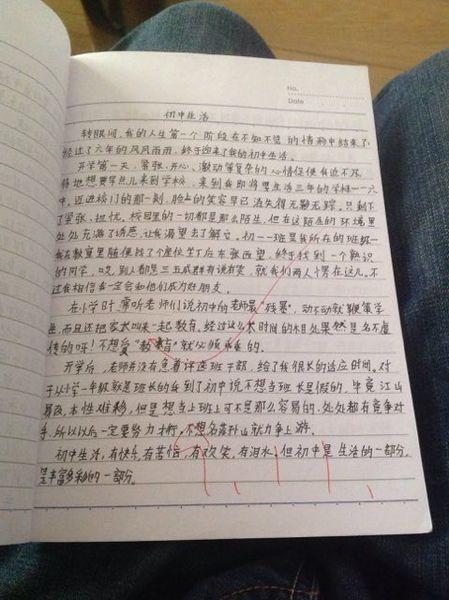 No.
Date
初中生活
转眼间,我的人生第一个阶段在不知不觉的情形中结束了,
经过了六年的风风雨雨,终于迎来了我的初中生活。
开学第一天,紧张、开心、激动等复杂的心情促使我迫不及
待地想要早点儿来到学校,来到我即将要生活三年的学校一一六
中。迈进校门的那一刻,脸上的笑容早已消失得无影无踪。只剩下
了紧张、担忧。校园里的一切都是那么陌生,但在这陌生的环境里
处处充满了诱惑,让我渴望去了解它。初一一班是我所在的班级
我在教室里随便找了个座位坐下后东张西望,终于找到一个熟识
的同学,哎,别人都是三五成群有说有笑,就我们两人愣在这儿。不
过我相信我一定会和他们成为好朋友。
在小学时常听老师们说初中的老师最"残暴",动不动就鞭策学
生,而且还把家长叫来一起教育。经过这么长时间的相处果然是名不虚
传的呀!不想受"教育"就必须乖乖的。
开学后,老师并没有急着评选班干部,给了我很长的适应时间。对
于从小学一年级就是班长的我到了初中说不想当班长是假的,毕竟江山
易改,本性难移,但是想当上班上可不是那么容易的,处处都有竞争对
手,所以以后一定要努力才行,不想名落孙山就力争上游。
初中生活,有快乐,有苦恼,有欢笑,有泪水,但初中是生活的一部分,
是丰富多彩的一部分。